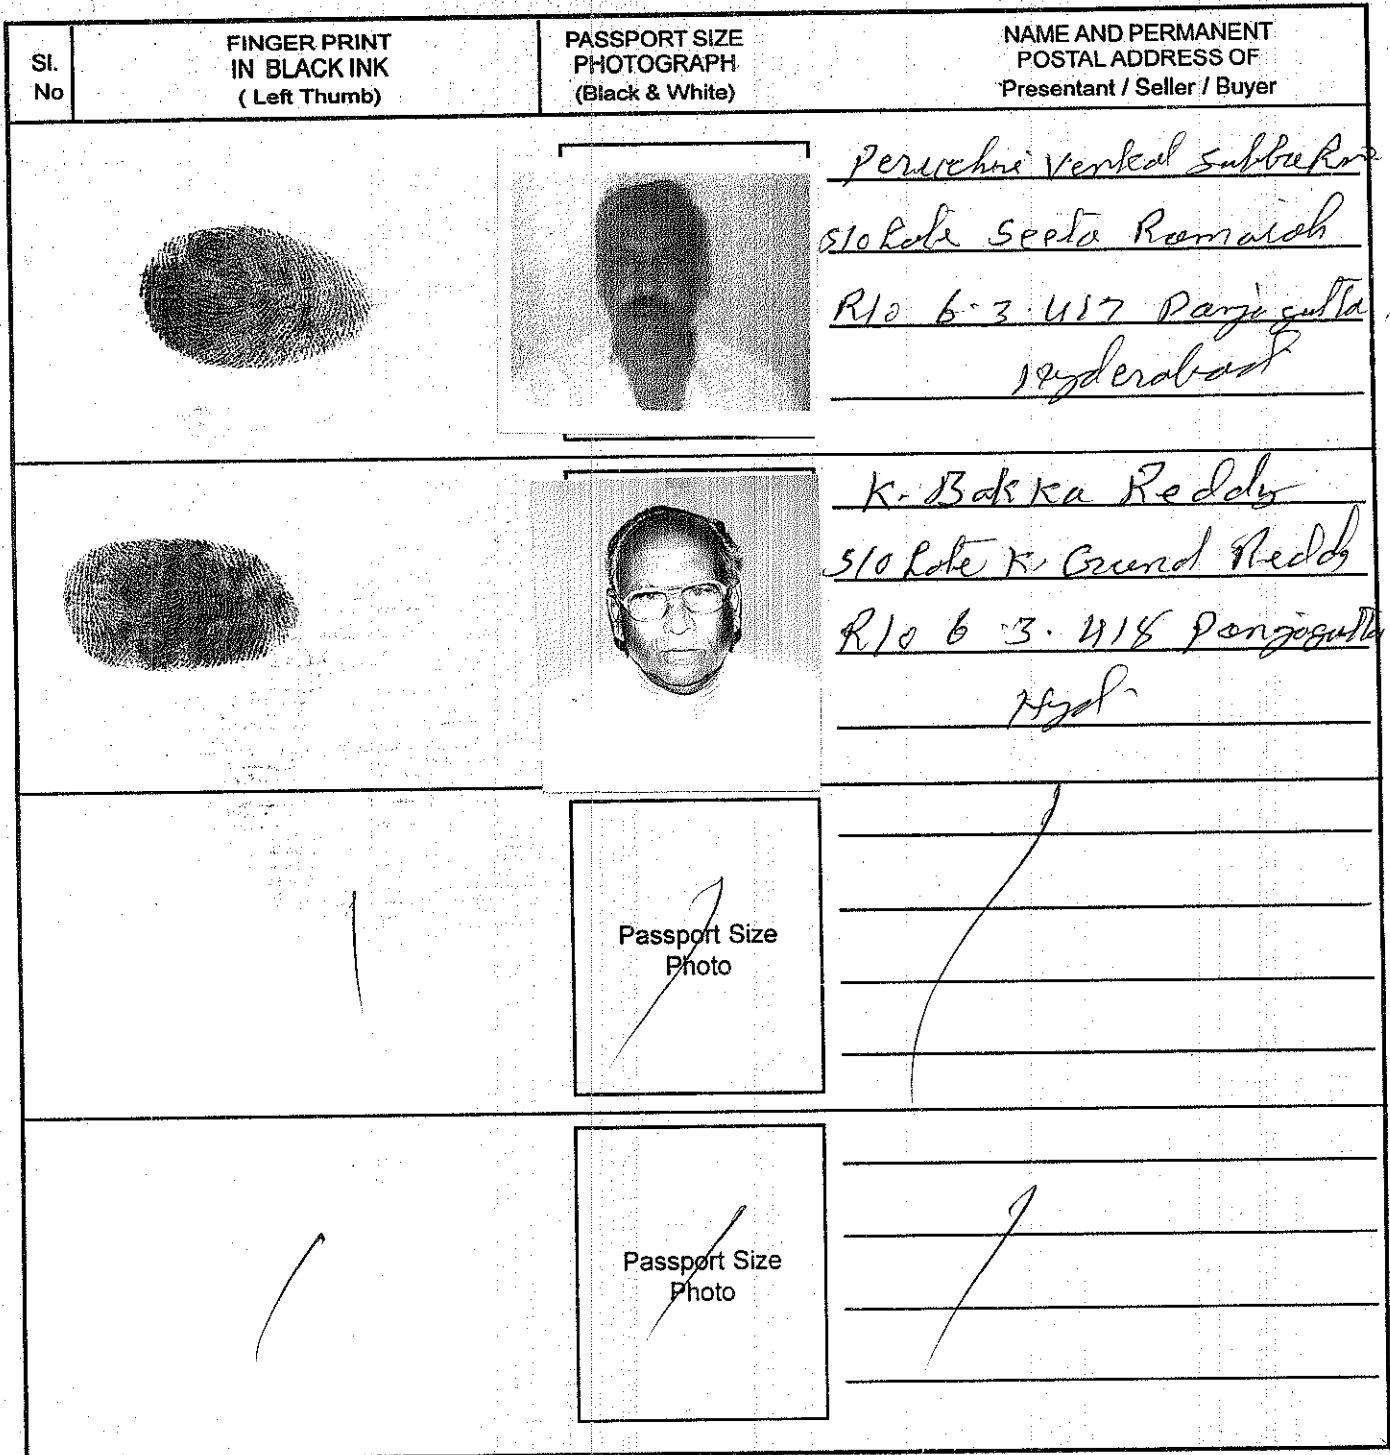 Sl.
No
FINGER PRINT
IN BLACK INK
( Left Thumb)
PASSPORT SIZE
PHOTOGRAPH
(Black & White)
NAME AND PERMANENT
POSTAL ADDRESS OF
Presentant / Seller / Buyer
Venkat Subba
S/o Late Seeta Ramaiah
R/o 6-3-417 Panjagutta
Hyderabad
K. Bakka Reddy
S/o Late K. Reddy
R/o 6-3-418 Panjagutta
Hyd
Passport Size
Photo
Passport Size
Photo